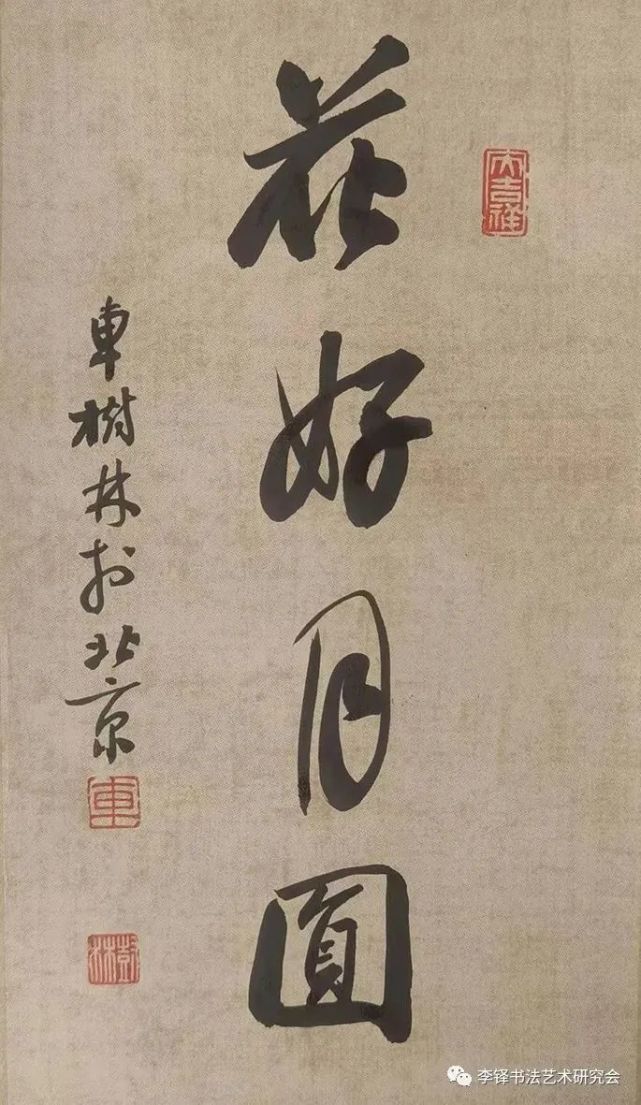 大吉祥
花好月圓
車樹林於北京
車
樹林
李铎书法艺术研究会